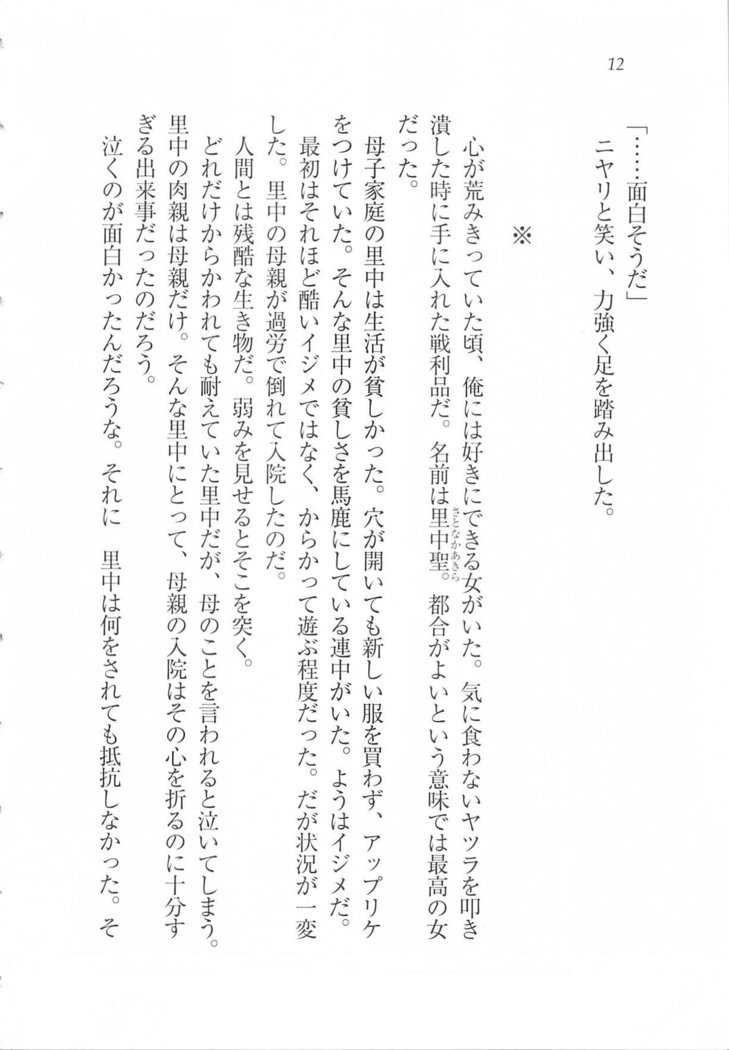 12
「……面白そうだ」
ニヤリと笑い、力強く足を踏み出した。
※
心が荒みきっていた頃、俺には好きにできる女がいた。気に食わないヤツラを叩き
潰した時に手に入れた戦利品だ。名前は里中聖。都合がよいという意味では最高の女
さとなかあきら
だった。
母子家庭の里中は生活が貧しかった。穴が開いても新しい服を買わず、アップリケ
をつけていた。そんな里中の貧しさを馬鹿にしている連中がいた。ようはイジメだ。
最初はそれほど酷いイジメではなく、からかって遊ぶ程度だった。だが状況が一変
した。里中の母親が過労で倒れて入院したのだ。
人間とは残酷な生き物だ。弱みを見せるとそこを突く。
どれだけからかわれても耐えていた里中だが、母のことを言われると泣いてしまう。
里中の肉親は母親だけ。そんな里中にとって、母親の入院はその心を折るのに十分す
ぎる出来事だったのだろう。
泣くのが面白かったんだろうな。それに　里中は何をされても抵抗しなかった。そ